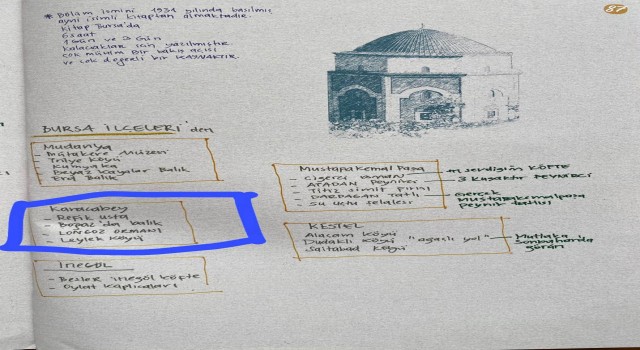 87
* Bölüm ismini 1931 yılında basılmış
aynı isimli kitaptan almaktadır.
Kitap Bursa'da
6 saat
1 Gün ve 3 Gün
kalacaklar için yazılmıştır
çok mühim bir bakış açısı
ve çok değerli bir KAYNAKTIR.
BURSA İLÇELERİ'den
Mudanya
- Mütareke Müzesi
- Trilye Köyü
- Kumyaka
- Beyaz Kayalar Balık
- Erol Balık
Karacabey
- Refik usta
- Boğaz'da balık
- LONGOZ ORMANI
- Leylek Köyü
İNEGÖL
- Besler inegöl köfte
- Oylat Kaplıcaları
Mustafa Kemal Paşa
- Ciğerci
en sevdiğim KÖFTE
- Peynirci
3 KUŞAKTIR PEYNİRCİ
- Titiz simit fırını
- DARDAĞAN TATLI
Gerçek Mustafakemalpaşa Peynir tatlısı
- Su uçtu şelalesi
KESTEL
- Alaçam Köyü
- Dudaklı Köyü "ağaçlı yol"
Mutlaka sonbaharda görün
- Saitabad Köyü